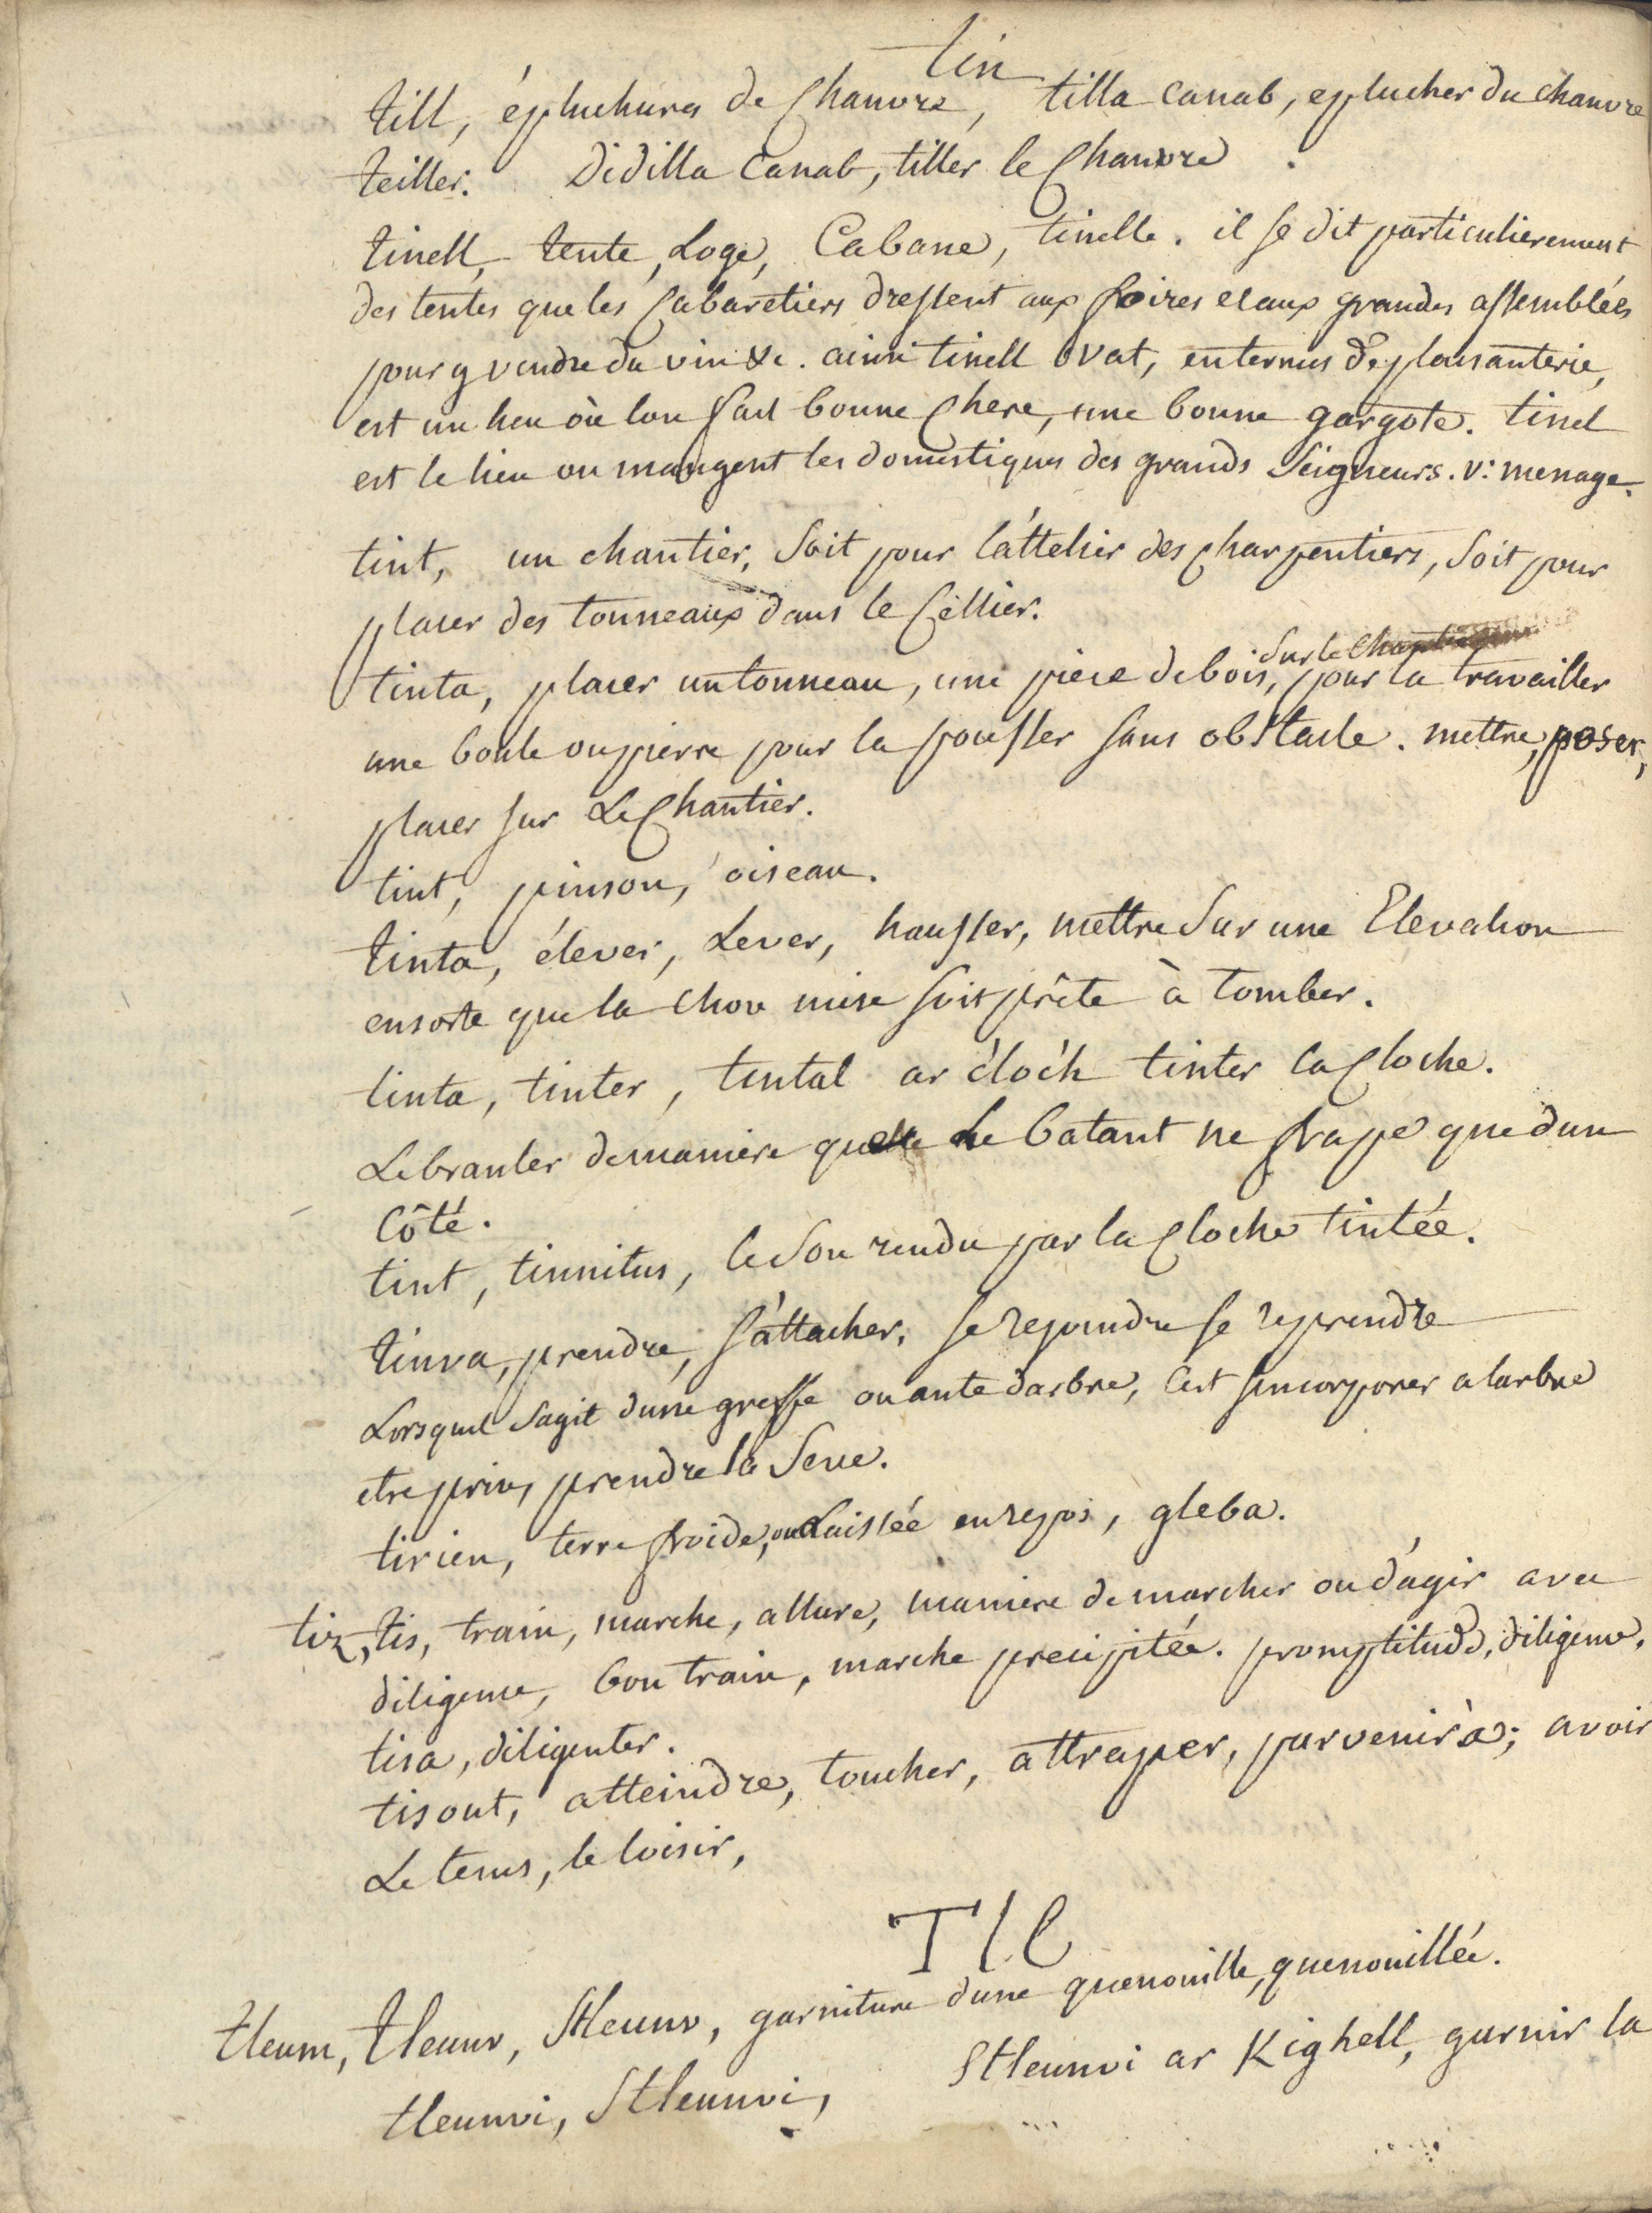 tin
till, épluchures de Chanvre, tilla canab, eplucher du chanvre
teiller. Didilla Canab, tiller le Chanvre.
tinell, tente, Loge, Cabane, tinelle. il se dit particulierement
des tentes que les Cabaretiers dressent aux foires et aux grandes assemblées
pour y vendre du vin &c. ainsi tinell vat, en termes de plaisanterie,
est un lieu où lon fait bonne Chere, une bonne gargote. tinel
est le lieu ou mangent les domestiques des grands Seigneurs. v: menage.
tint, un chantier, Soit pour l'áttelier des Charpentiers, Soit pour
placer des tonneaux dans le Cellier.
tinta, placer un tonneau, une piece de bois, sur le Chantier pour la travailler
une boule ou pierre pour la pousser sans obstacle. mettre, poser,
placer sur Le Chantier.
tint, pinson, oiseau.
tinta, élever, Lever, hausser, mettre Sur une Elevation
ensorte que la chose mise soit prête à tomber.
tinta, tinter, tintal ar c'loc'h tinter la Cloche.
Lebranler demaniere que le batant ne frape que dun
Côté.
tint, tinnitus, le Son rendu par la Cloche tintée.
tinva, prendre, s'áttacher, se rejoindre se reprendre
Lorsquil sagit dune greffe ou ante darbre, Cest sincorporer a larbre
etre pris, prendre la Seve.
tirien, terre froide, ou Laissée en repos, gleba.
tiz, tis, train, marche, allure, maniere de marcher ou d'ágir avec
diligence, bon train, marche precipitée. promptitude, diligence.
tisa, diligenter.
tisout, atteindre, toucher, attraper, parvenir à; avoir
Le tems, le loisir,
Tle
tleum, tleunv, Stleunv, garniture dune quenouille, quenouillée.
tleunvi, Stleunvi, Stleunvi ar Kighell, garnir la